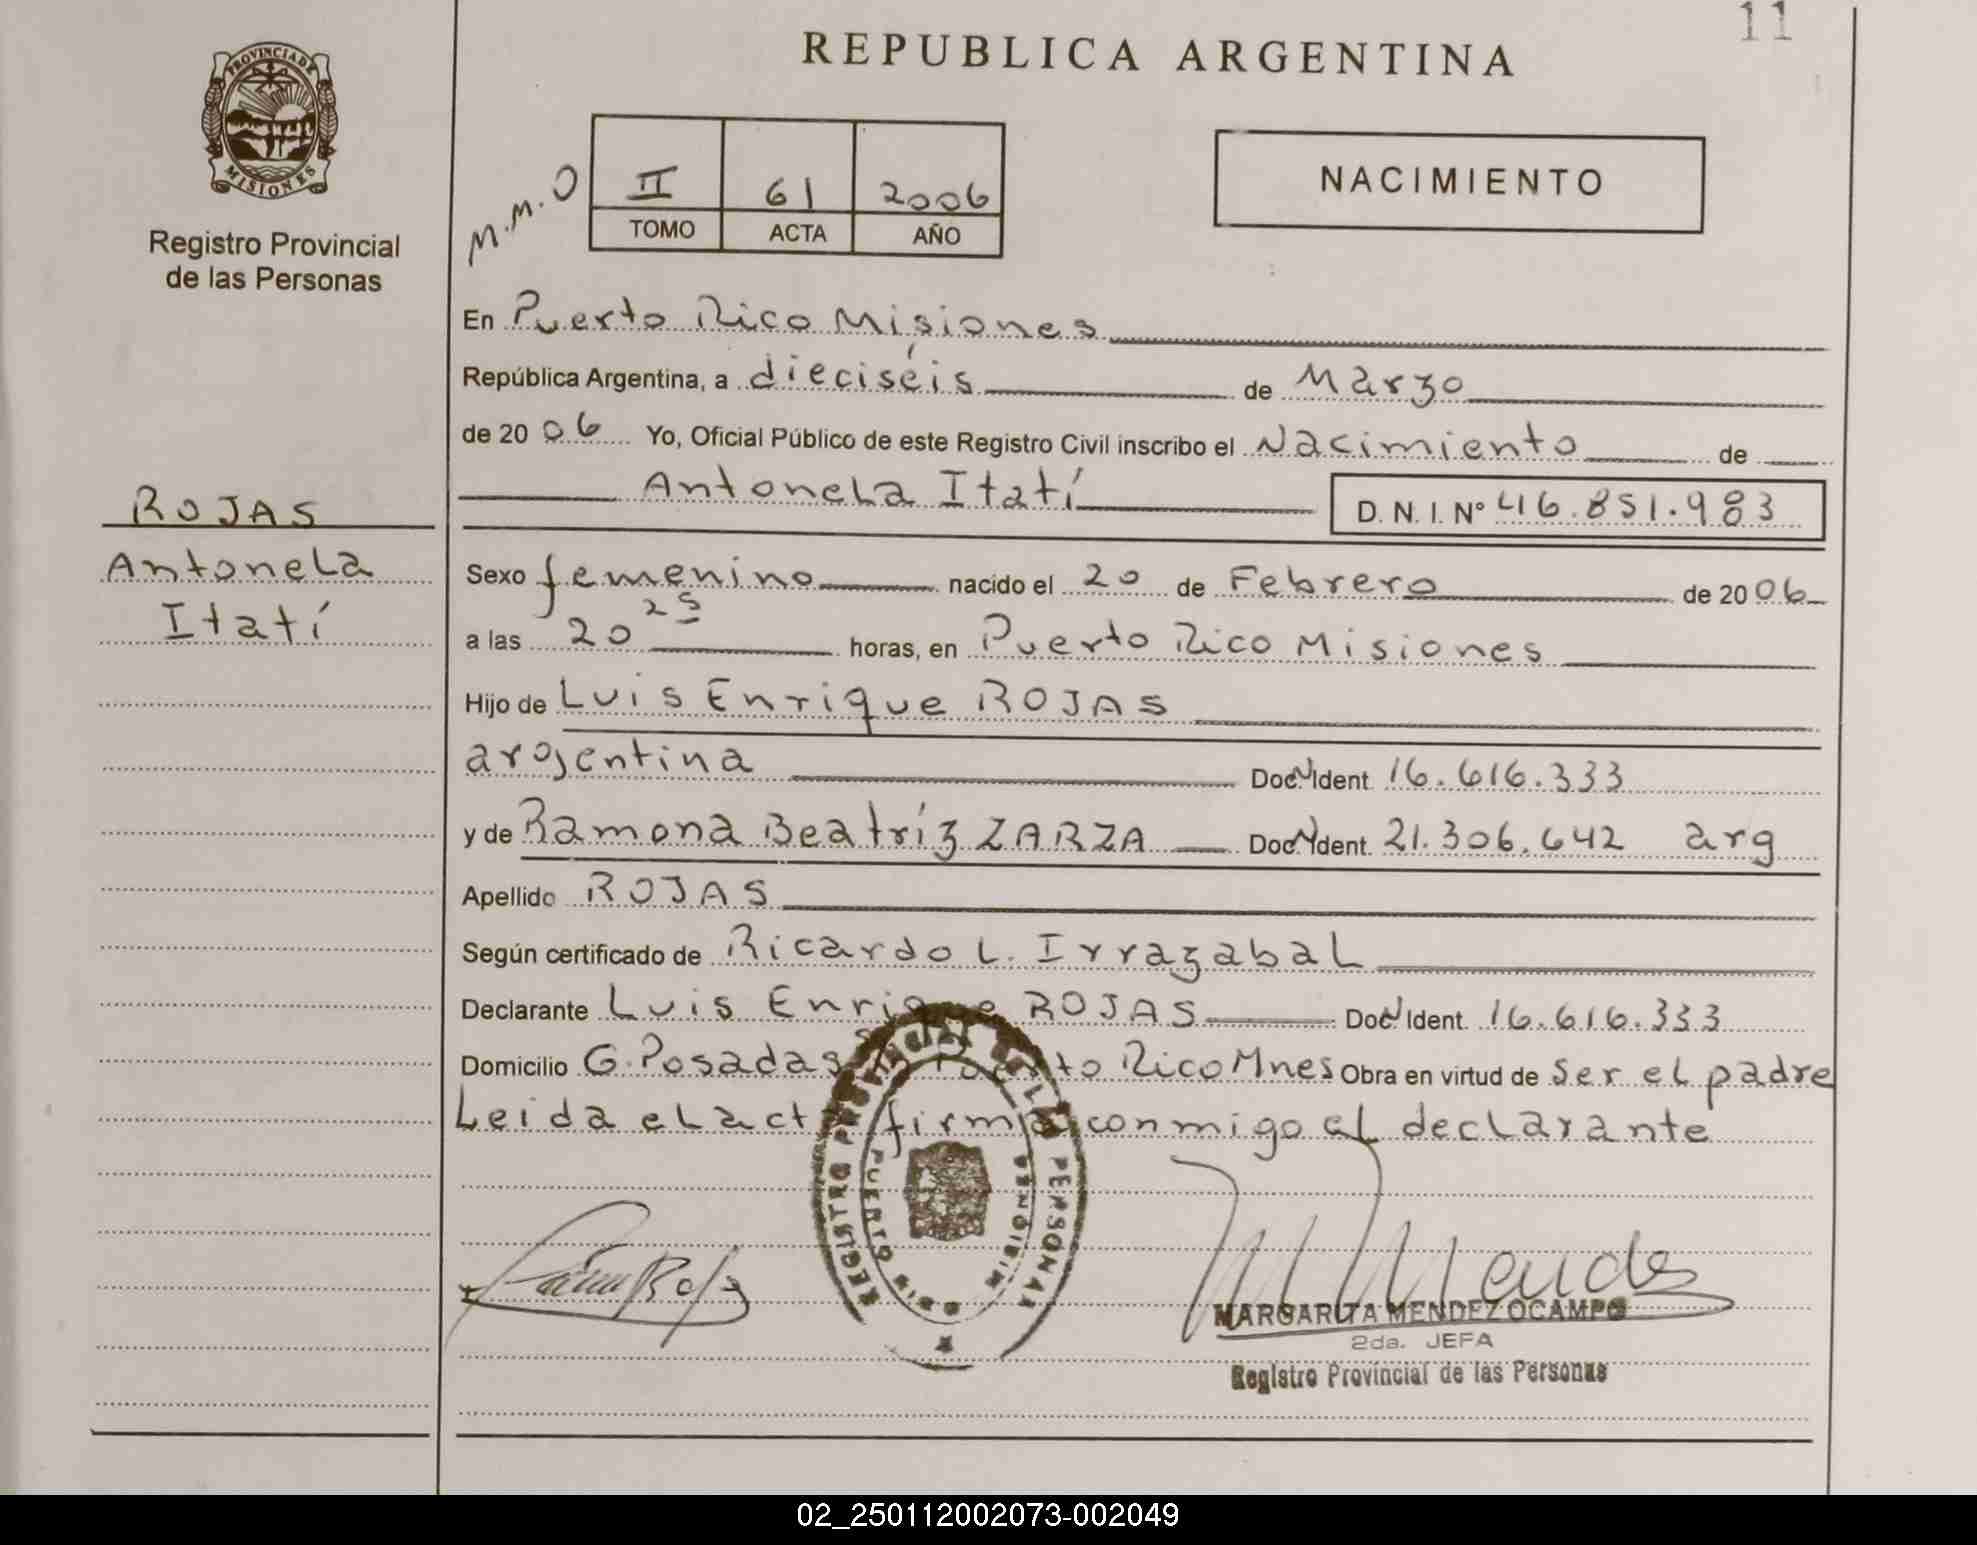 11
REPUBLICA ARGENTINA
PROVINCIA DE
MISIONES
Registro Provincial
de las Personas
M.M.O
II 61 2006
TOMO ACTA AÑO
NACIMIENTO
En Puerto Rico Misiones
República Argentina, a dieciséis de Marzo
de 2006 Yo, Oficial Público de este Registro Civil inscribo el Nacimiento de
Antonela Itatí D.N.I. N° 46.851.983
ROJAS
Antonela
Itatí
Sexo femenino nacido el 20 de Febrero de 2006
a las 20 25 horas, en Puerto Rico Misiones
Hijo de Luis Enrique ROJAS
argentina Doc. Ident. 16.616.333
y de Ramona Beatríz ZARZA Doc. Ident. 21.306.642 arg
Apellido ROJAS
Según certificado de Ricardo L. Irrazabal
Declarante Luis Enrique ROJAS Doc. Ident. 16.616.333
Domicilio G. Posadas Puerto Rico Mnes Obra en virtud de Ser el padre
Leida el acta firma conmigo el declarante
REGISTRO PROVINCIAL DE LAS PERSONAS
PUERTO RICO MISIONES
MARGARITA MENDEZ OCAMPO
2da. JEFA
Registro Provincial de las Personas
02_250112002073-002049